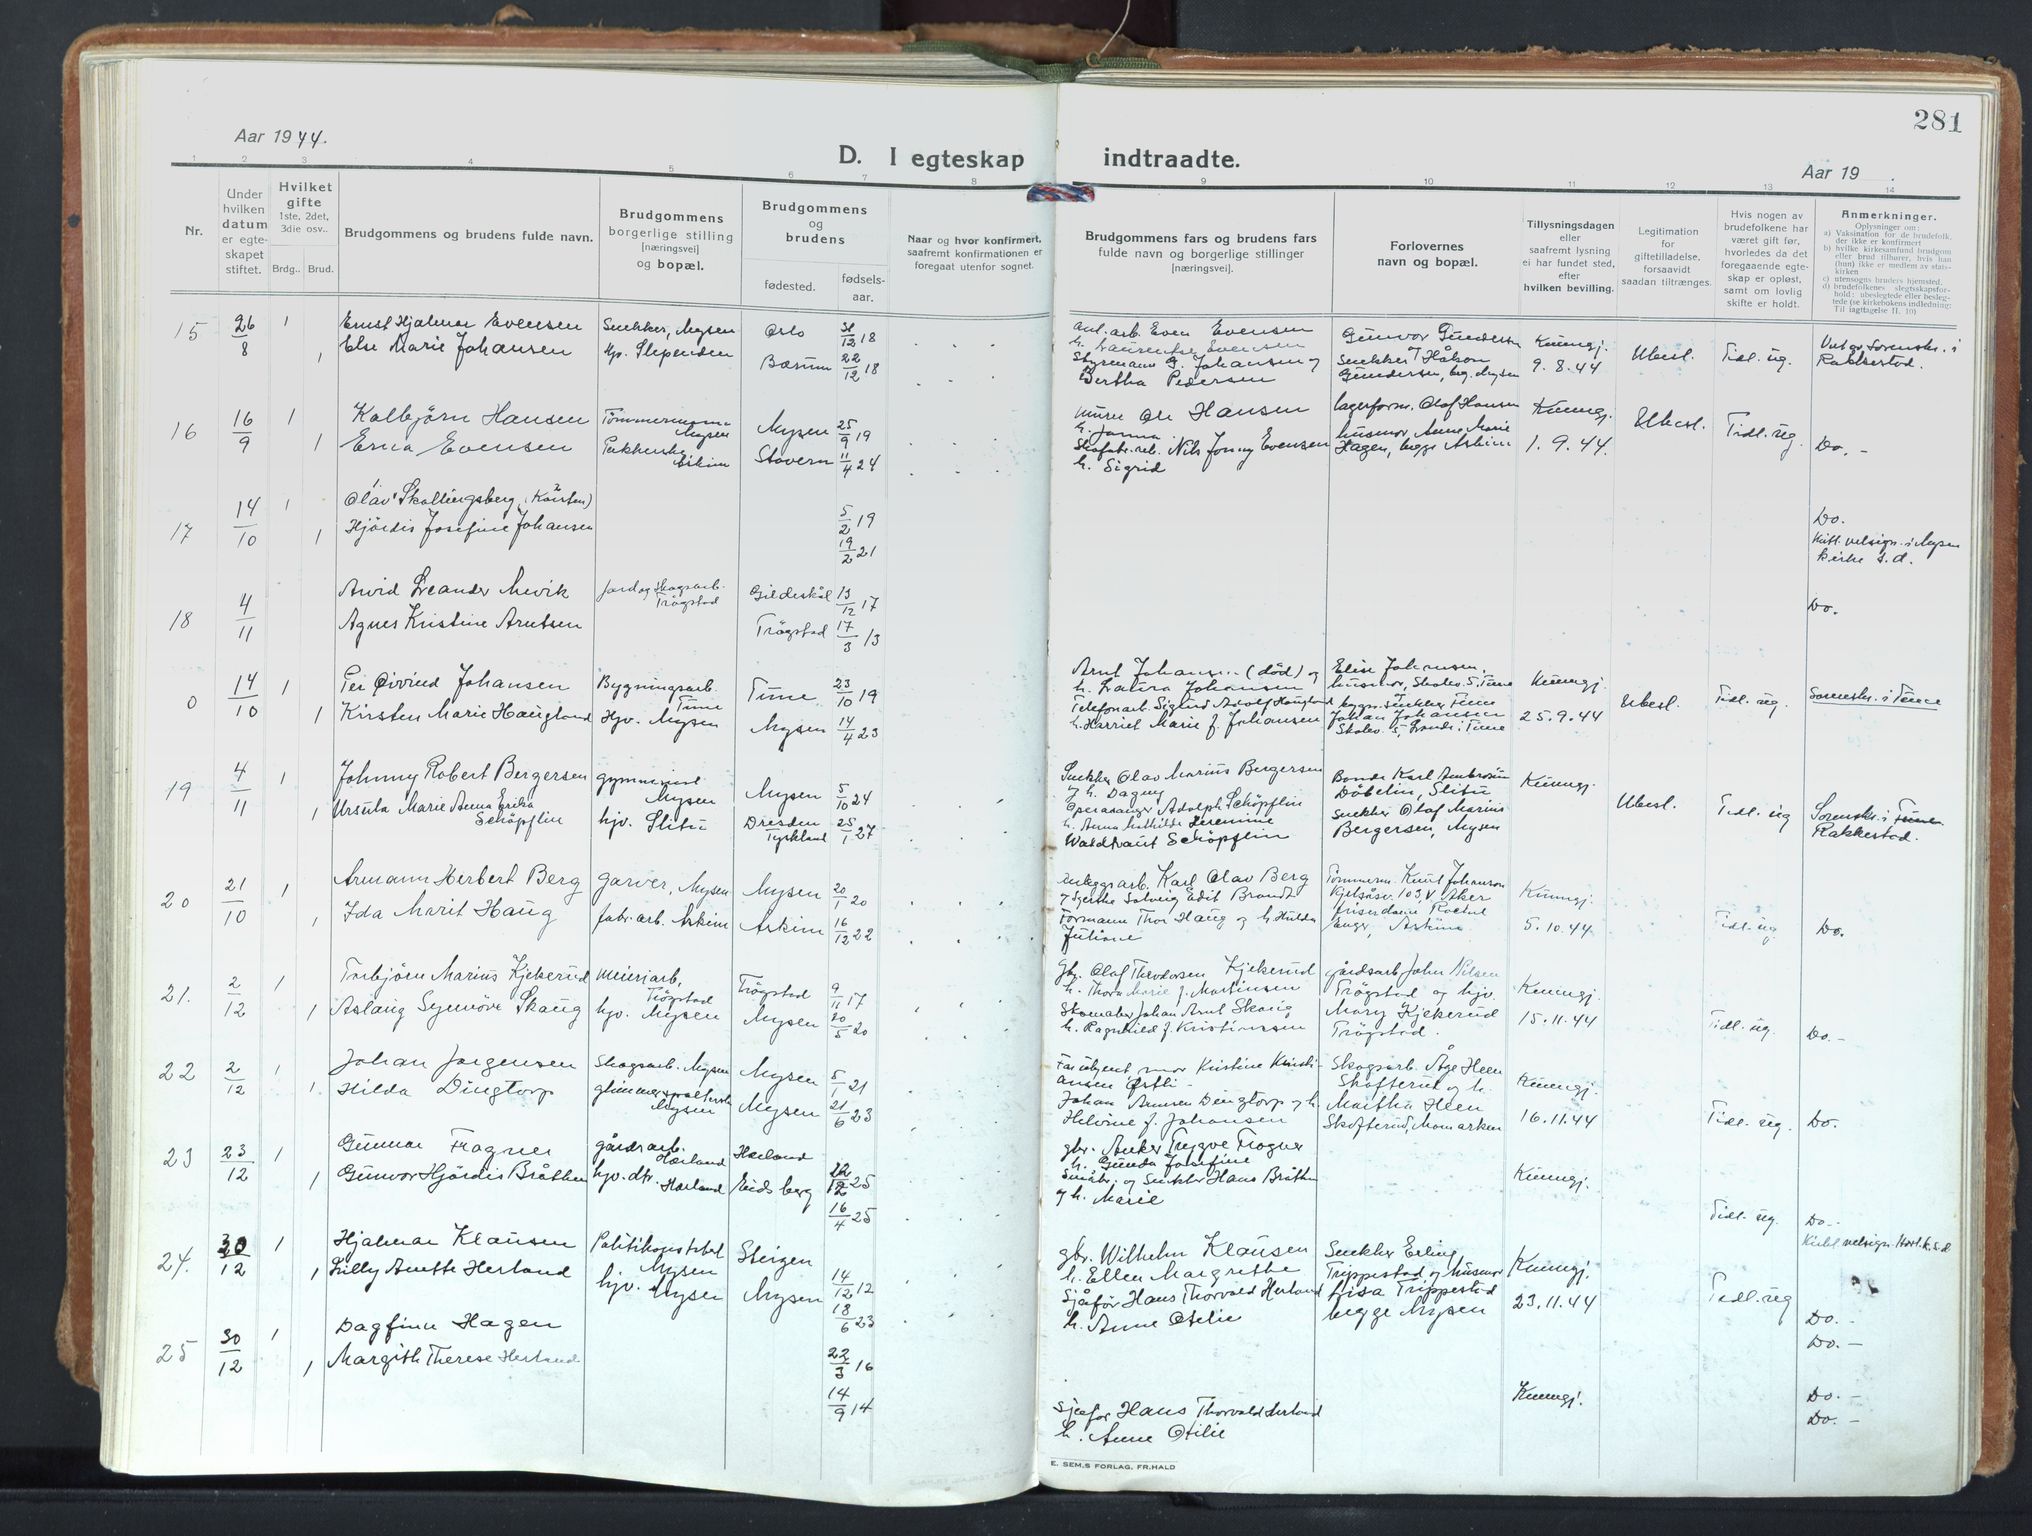 281
Aar 1944.
D. I egteskap indtraadte.
Aar 19
1 2 3 4 5 6 7 8 9 10 11 12 13 14
Nr.
Under hvilken datum er egteskapet stiftet.
Hvilket gifte 1ste, 2det, 3die osv..
Brdg.. Brud.
Brudgommens og brudens fulde navn.
Brudgommens borgerlige stilling [næringsvei] og bopæl.
Brudgommens og brudens
fødested. fødselsaar.
Naar og hvor konfirmert, saafremt konfirmationen er foregaat utenfor sognet.
Brudgommens fars og brudens fars fulde navn og borgerlige stillinger [næringsvei].
Forlovernes navn og bopæl.
Tillysningsdagen eller saafremt lysning ei har fundet sted, efter hvilken bevilling.
Legitimation for giftetilladelse, forsaavidt saadan tiltrænges.
Hvis nogen av brudefolkene har været gift før, hvorledes da det foregaaende egteskap er opløst, samt om lovlig skifte er holdt.
Anmerkninger.
Oplysninger om:
a) Vaksination for de brudefolk, der ikke er konfirmert
b) hvilke kirkesamfund brudgom eller brud tilhører, hvis han (hun) ikke er medlem av statskirken
c) utensogns bruders hjemsted.
d) brudefolkenes slegtsskapsforhold: ubeslegtede eller beslegtede (se kirkebokens indledning: Til iagttagelse II. 10)
15 26/8 1 Ernst Hjalmar Evensen Snekker, Mysen Oslo 31/12 18
1 Else Marie Johansen Hp. Slependen Bærum 22/12 18
anl. arb. Even Evensen
h. Laurentse Evensen
Styrmann G. Johansen og
Bertha Pedersen
Gunvor Gundersen
og
Snekker Håkon
Gundersen, beg. Mysen
Kunngj.
9.8.44
Ubesl.
Tidl. ug.
Utst av Sorenskr. i
Rakkestad.
16 16/9 1 Kolbjørn Hansen Tømmermann Mysen Mysen 25/9 19
1 Erna Evensen Pakkerske Askim Stavern 11/4 24
murer Ole Hansen
h. Janna
Skofabr.arb. Nils Jonny Evensen
h. Sigrid
lagerform. Olaf Hansen
husmor Anne Marie
Hagen, begge Askim
Kunngj.
1.9.44.
Ubesl.
Tidl. ug.
Do. -
17 14/10 1 Olav Skallingsberg (Karsten) 5/2 19
1 Hjördis Josefine Johansen 19/2 21
Do.
Kirk. velsign. i Mysen
kirke s.d.
18 4/11 Arvid Leander Mevik Jord og Skogsarb. Trøgstad Gildeskål 13/12 17
Agnes Kristine Arntsen Trøgstad 17/3 13
Do.
0 14/10 1 Per Øivind Johansen Bygningsarb. Tune Tune 23/10 19
1 Kirsten Marie Haugland Hjv. Mysen Mysen 14/4 23
Arnt Johansen (död) og
h. Laura Johansen
Telefonarb. Sigurd Adolf Haugland
h. Harriet Marie f. Johansen
Elise Johansen,
husmor, Skolev. 5, Tune
bygn. snekker Tune
Johan Johansen
Skolev. 5, Grande i Tune
Kunngj.
25.9.44
Ubesl.
Tidl. ug.
Sorenskr. i Tune
19 4/11 1 Johnny Robert Bergersen gymnasiast Mysen Mysen 5/10 24
1 Ursula Marie Anna Erika Schöpflin hjv. Slitu Dresden Tyskland 25/1 27
Snekker Olav Marius Bergersen
og h. Dagny
Operasanger Adolph Schöpflin
h. Anna Mathilde Hermine
Waldtraut Schöpflin
Bonde Karl Ambrosius
Döbelin, Slitu
Snekker Olaf Marius
Bergersen, Mysen
Kunngj.
Ubesl.
Tidl. ug
Sorenskr. i Tune
Rakkestad.
20 21/10 1 Armann Herbert Berg garver, Mysen Mysen 20/1 20
1 Ida Marit Haug fabr. arb. Askim Askim 16/12 22
anleggsarb. Karl Olav Berg
og Gjertha Solveig Edit Brandt
Formann Thor Haug og h. Hulda
Juliane
Tømmerm. Knut Johansen
Kjelsåsv. 103, V. Aker
Enger, Askim
Kunngj.
5.10.44
Tidl. ug
Do.
21. 2/12 1 Torbjörn Marius Kjekerud Meieriarb, Trögstad Trögstad 9/11 17
1 Aslaug Synnöve Skaug hjv. Mysen Mysen 20/5 20
Gbr. Olaf Theodorsen Kjekerud
h. Thora Marie f. Martinsen
Skomaker Johan Arnt Skaug
h. Ragnhild f. Kristianssen
gårdsarb John Nilsen
Trögstad og hjv.
Mary Kjekerud
Trögstad.
Kunngj.
15.11.44
Tidl. ug.
Do. -
22 2/12 1 Johan Jørgensen Skogsarb. Mysen Mysen 5/1 21
1 Hilda Dingtorp glimmerspalterske Mysen Mysen 21/6 23
Far ukjent mor Kristine Kristi-
ansen Østli -
Johan Arnesen Dingtorp og h.
Helvine f. Johansen
Skogsarb. Åge Heen
Skofterud og h.
Martha Heen
Skofterud, Momarken
Kunngj.
16.11.44
Tidl. ug.
Do.
23 23/12 1 Gunnar Frogner gårdsarb. Hærland Hærland 25
1 Gunvor Hjördis Bråthen hjv. dtr. Hærland Eidsberg 16/4 25
gbr. Anker Trygve Frogner
h. Gunda Josefine
Småbr. og Snekker Hans Bråthen
og h. Marie
Kunngj.
Tidl. ug.
Do. -
Kirkl. velsign. Hærl. k. s.d
24. 30/12 1 Hjalmar Klausen Politikonstabel Mysen Steigen 14/12 12
1 Lilly Anette Herland hjv. Mysen Mysen 18/6 23
gbr. Wilhelm Klausen
h. Ellen Margrethe
Sjåför Hans Thorvald Herland
h. Anne Otilie
Snekker Erling
Trippestad og husmor
Lisa Trippestad
begge Mysen
Kunngj.
23.11.44
Tidl. ug
Do. -
Do. -
25 30/12 1 Dagfinn Hagen 22/3 16
1 Margith Therese Herland 14/9 14
sjåför Hans Thorvald Herland
h. Anne Otilie
Kunngj.
Do. -
Do. -
E. SEM.S FORLAG, FR.HALD